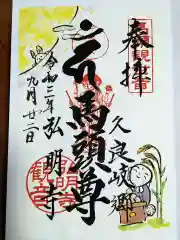 奉拝
馬頭尊
久良岐郷
令和三年
九月廿二日
弘明寺
観音